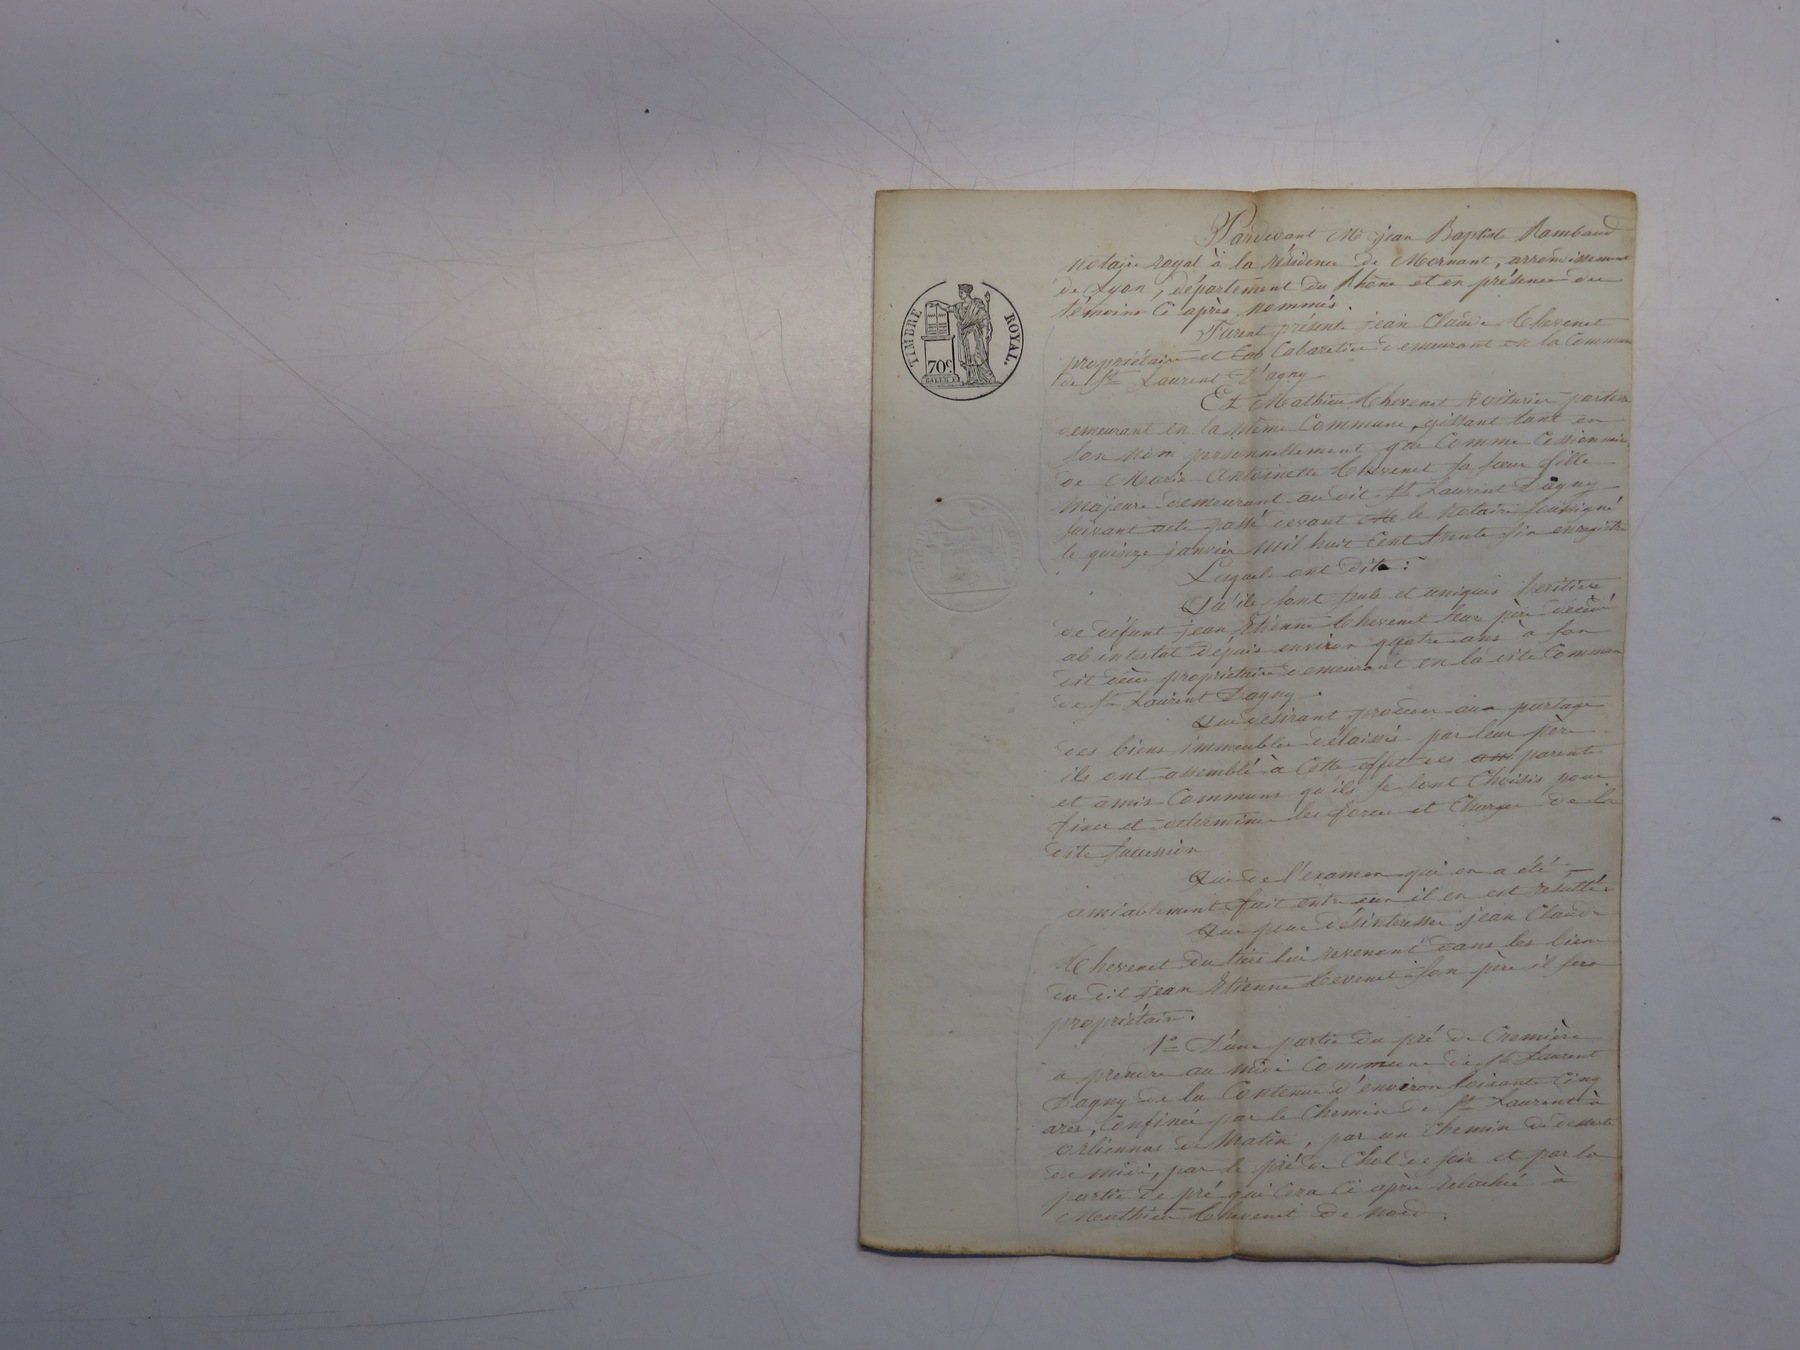 TIMBRE ROYAL.
70c.
Pardevant Me jean Baptiste Rambaud
notaire royal à la résidence de Mornant, arrondissement
de Lyon, département du Rhône et en présence des
témoins Ci après nommés.
Furent présents jean Claude Chevenet
propriétaire et Cabaretier demeurant en la Commune
de St Laurent D'agny
Et Mathieu Chevenet voiturier par terre
demeurant en la même Commune, agissant tant en
son nom personnellement que Comme Cessionnaire
de Marie Antoinette Chevenet sa sœur fille
majeure demeurant au dit St Laurent Dagny
suivant acte passé devant Me le Notaire soussigné
le quinze janvier mil huit Cent trente six enregistré
Lesquels ont dit :
Qu'ils sont seuls et uniques héritiers
de défunt jean Etienne Chevenet leur père décédé
ab intestat depuis environ quatre ans à son
dit décès propriétaire demeurant en la dite Commune
de St Laurent Dagny.
Que désirant procéder au partage
des biens immeubles délaissés par leur père
ils ont assemblé à Cette effet des am parents
et amis Communs qu'ils se sont Choisis pour
fixer et déterminer les forces et Charges de la
dite succession
Que de l'examen qui en a été
amiablement fait entre eux il en est resulté
Que pour désintéresser jean Claude
Chevenet du tiers lui revenant dans les biens
du dit jean Etienne Chevenet son père il sera
propriétaire.
1o D'une partie du pré de Cremière
a prendre au midi Commune de St Laurent
Dagny de la Contenue d'environ soixante Cinq
ares, Confinée par le Chemin de St Laurent à
Orliennas de Matin, par un Chemin de desserte
de midi, par le pré de Chol de soir et par la
partie de pré qui sera Ci après relachée à
Mathieu Chevenet de Nord.